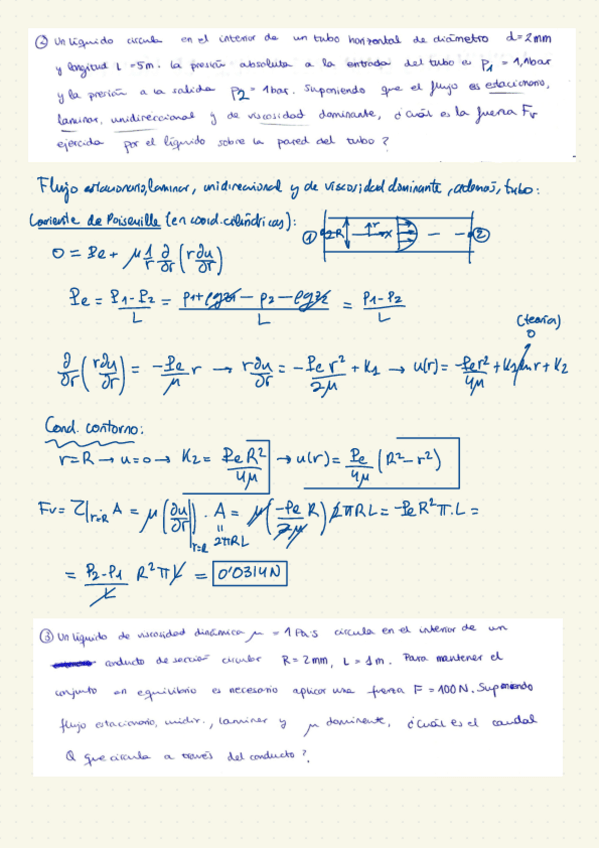 ② Un líquido circula en el interior de un tubo horizontal de diámetro d=2mm
y longitud L=5m. La presión absoluta a la entrada del tubo es P₁ = 1,1bar
y la presión a la salida P₂ = 1bar. Suponiendo que el flujo es estacionario,
laminar, unidireccional y de viscosidad dominante, ¿Cuál es la fuerza Fv
ejercida por el líquido sobre la pared del tubo?
Flujo estacionario, laminar, unidireccional y de viscosidad dominante, además, tubo:
Corriente de Poiseuille (en coord. cilíndricas):
① 2R r x ②
0 = Pe + μ 1/r ∂/∂r (r ∂u/∂r)
Pe = P1-P2/L = p1+ρgz1 - p2 - ρgz2/L = P1-P2/L
(teoría)
0
∂/∂r (r∂u/∂r) = -Pe/μ r → r∂u/∂r = -Pe r²/2μ + K1 → u(r) = -Pe r²/4μ + K1 ln r + K2
Cond. contorno:
r=R → u=0 → K2 = Pe R²/4μ → u(r) = Pe/4μ (R²-r²)
Fv = τ|r=R A = μ (∂u/∂r)|r=R · A = μ (-Pe R/2μ) 2πRL = -Pe R² π · L =
= 2πRL
= P2-P1/L R² π L = 0'0314N
③ Un líquido de viscosidad dinámica μ = 1 Pa·s circula en el interior de un
conducto de sección circular R = 2mm, L = 1m. Para mantener el
conjunto en equilibrio es necesario aplicar una fuerza F = 100N. Suponiendo
flujo estacionario, unidir., laminar y μ dominante, ¿Cuál es el caudal
Q que circula a través del conducto?